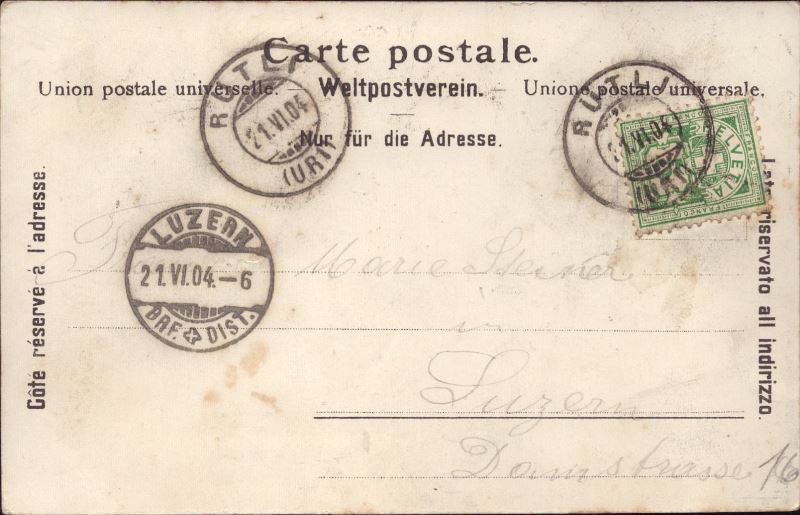 Carte postale.
Union postale universelle. — Weltpostverein. — Unione postale universale.
Nur für die Adresse.
Côté réservé à l'adresse.
Lato riservato all indirizzo.
RÜTLI
21.VI.04
(URI)
RÜTLI
21.VI.04
(URI)
HELVETIA
FRANCO
LUZERN
21.VI.04.-6
BRF. DIST.
Marie Steiner
in
Luzern
Damstrasse 16